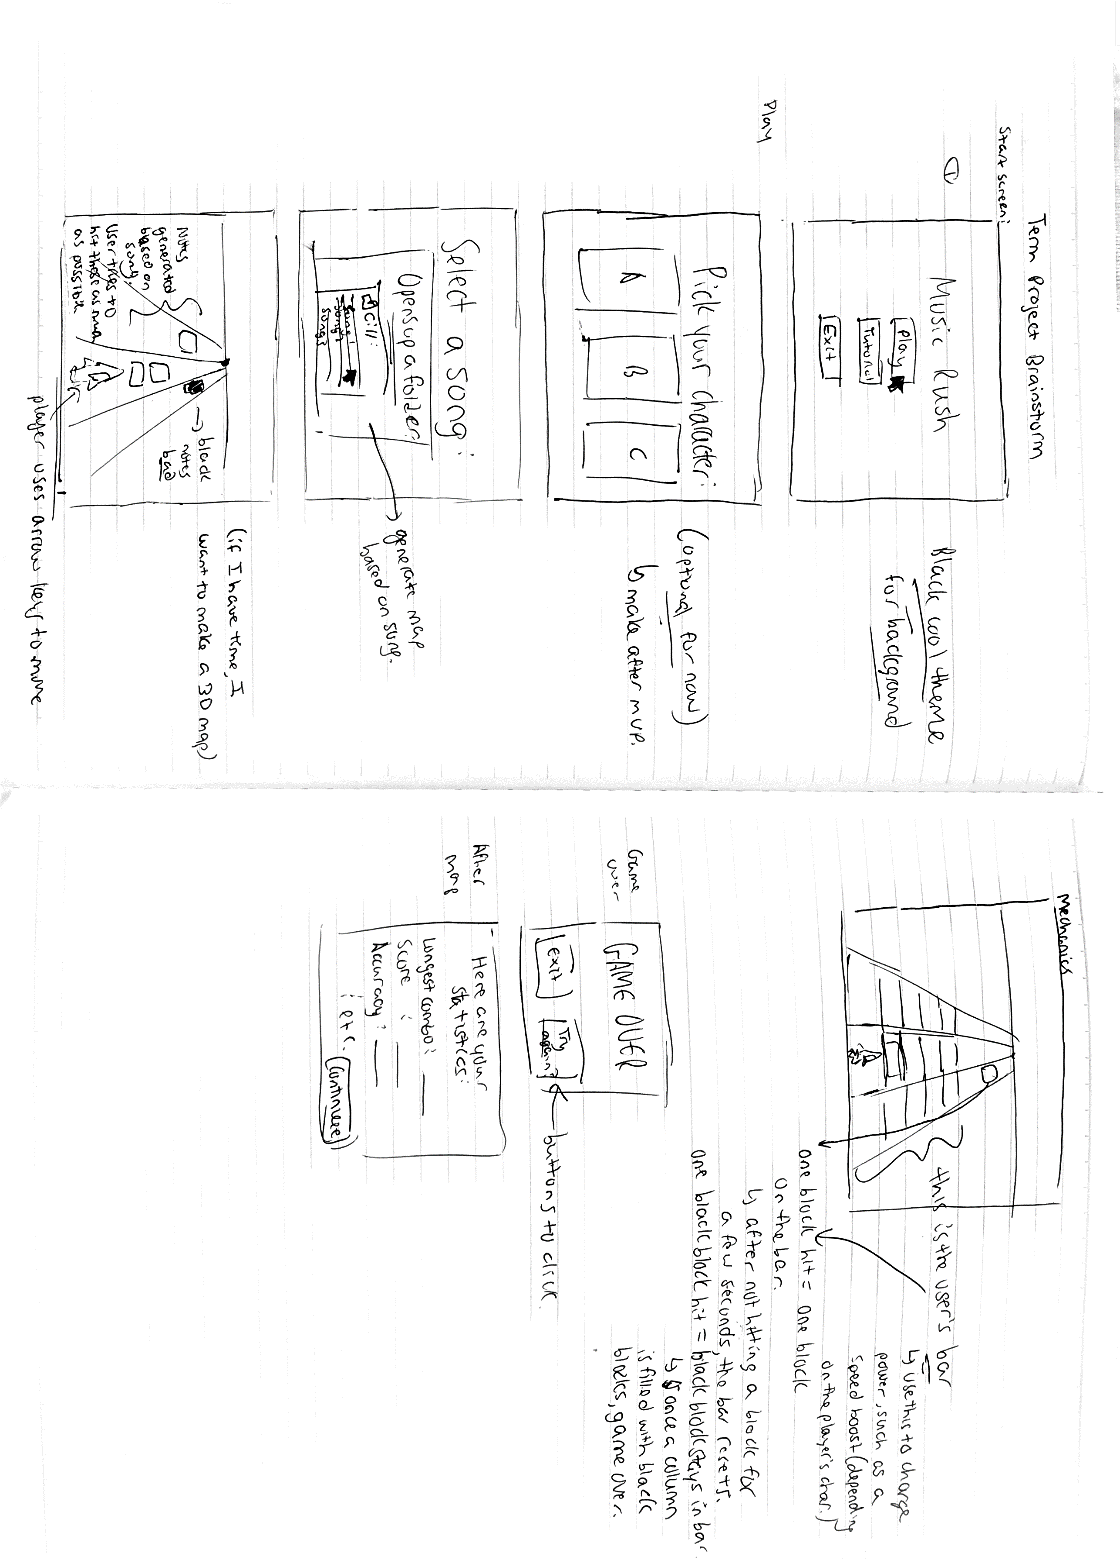 Term Project Brainstorm
Start screen:
①
Music Rush
Play
Tutorial
Exit
Black cool theme
for background
Play
Pick your character:
A
B
C
(optional for now)
↳ make after mvp.
Select a song:
Opens up a folder:
song1
song2
→ generate map
based on song.
Notes
generated
based on
song.
User tries to
hit these as
as possible
→ black
notes
bad
(if I have time, I
want to make a 3D map)
player uses arrow keys to move
Mechanics
this is the user's bar
↳ use this to charge
power, such as a
speed boost (depending
on the player's char.)
one block hit = one block
on the bar.
↳ after not hitting a block for
a few seconds, the bar resets.
one black block hit = black block stays in bar
↳ once a column
is filled with black
blocks, game over.
Game
over
GAME OVER
Exit
Try
again?
← buttons to click
After
map
Here are your
statistics:
Longest combo:
Score :
Accuracy :
: etc.
Continue